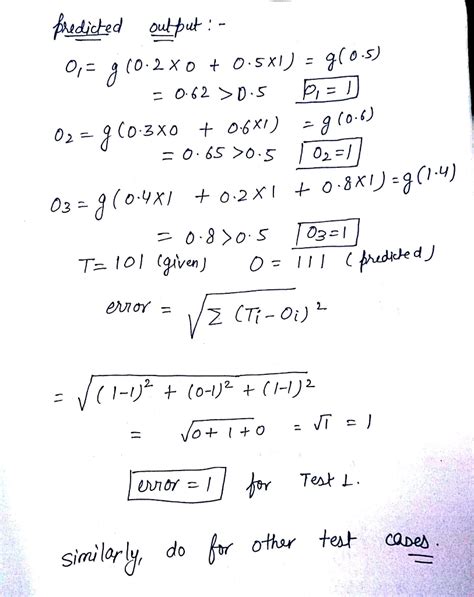 predicted output :-
O1 = g(0.2×0 + 0.5×1) = g(0.5)
= 0.62 > 0.5 O1 = 1
O2 = g(0.3×0 + 0.6×1) = g(0.6)
= 0.65 > 0.5 O2 = 1
O3 = g(0.4×1 + 0.2×1 + 0.8×1) = g(1.4)
= 0.8 > 0.5 O3 = 1
T = 101 (given) O = 111 (predicted)
error = √Σ (Ti - Oi)²
= √(1-1)² + (0-1)² + (1-1)²
= √0+1+0 = √1 = 1
error = 1 for Test 1.
similarly, do for other test cases.